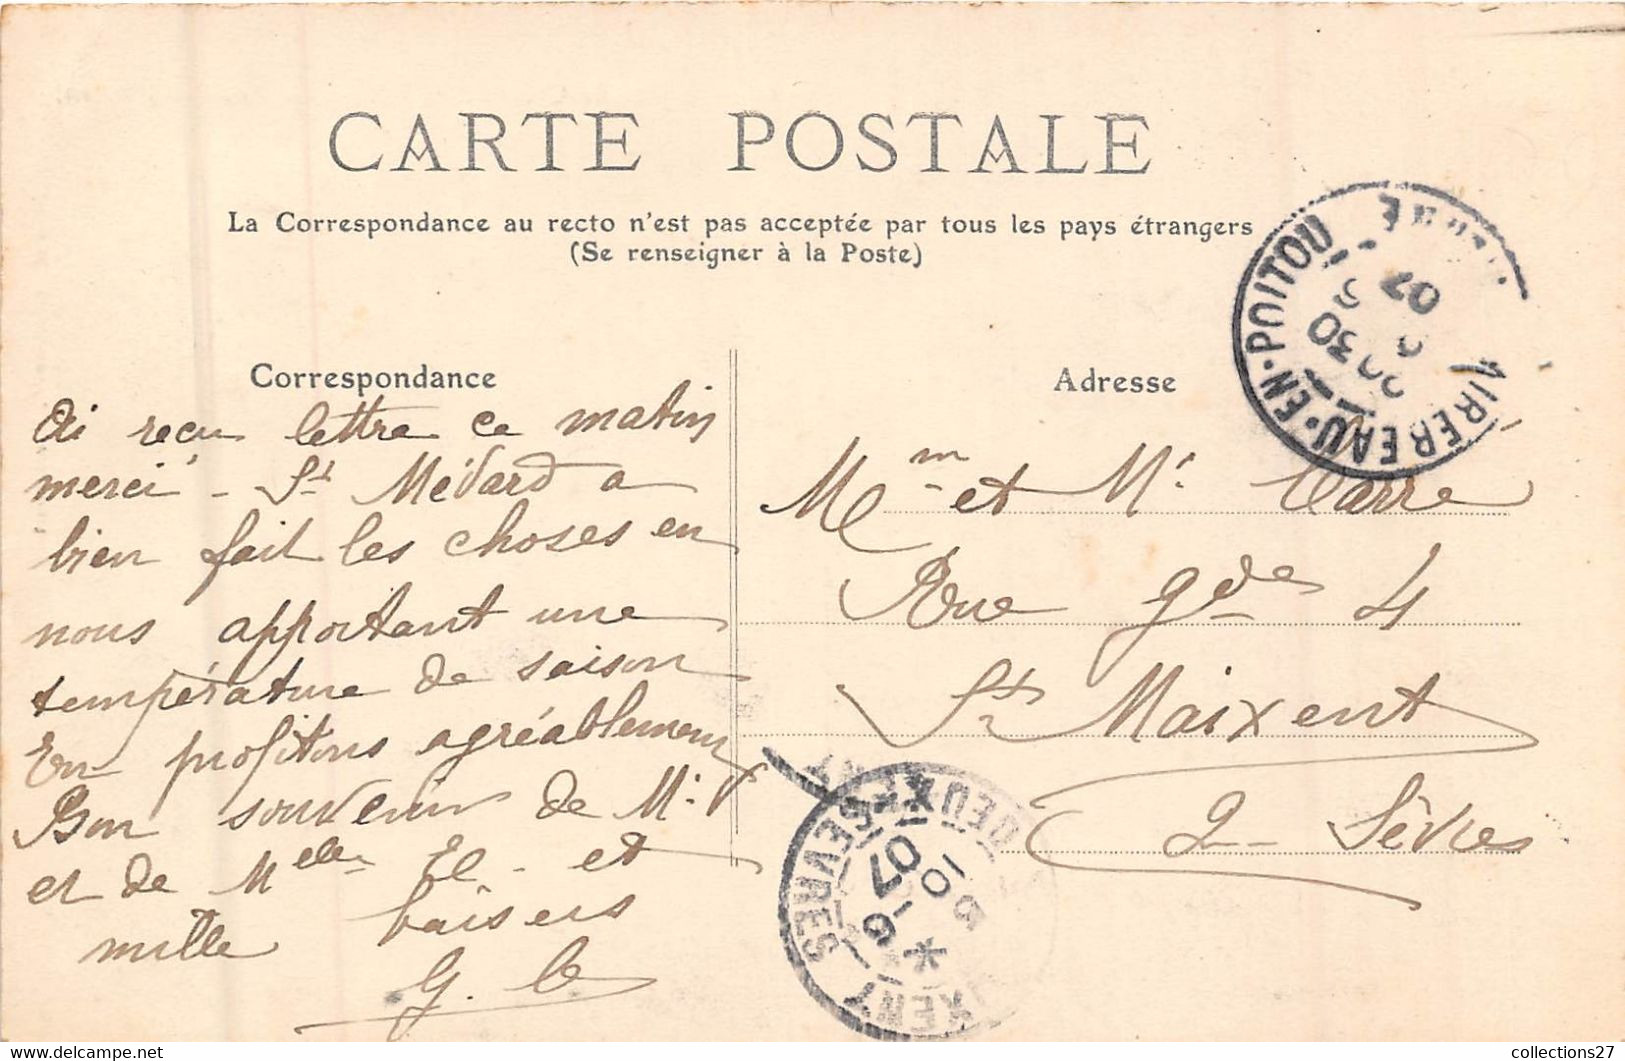 CARTE POSTALE
La Correspondance au recto n'est pas acceptée par tous les pays étrangers
(Se renseigner à la Poste)
Correspondance
Ai reçu lettre ce matin
merci - St Médard a
bien fait les choses en
nous apportant une
température de saison
En profitons agréablement
Bon souvenir de Mr
et de Melle El. et
mille baisers
G. C
Adresse
Mm et Mr Carré
Rue gde 4
St Maixent
2 Sèvres
AIREREAU·EN·POITOU
30
07
DEUX-SEVRES
10
6
07
collections27